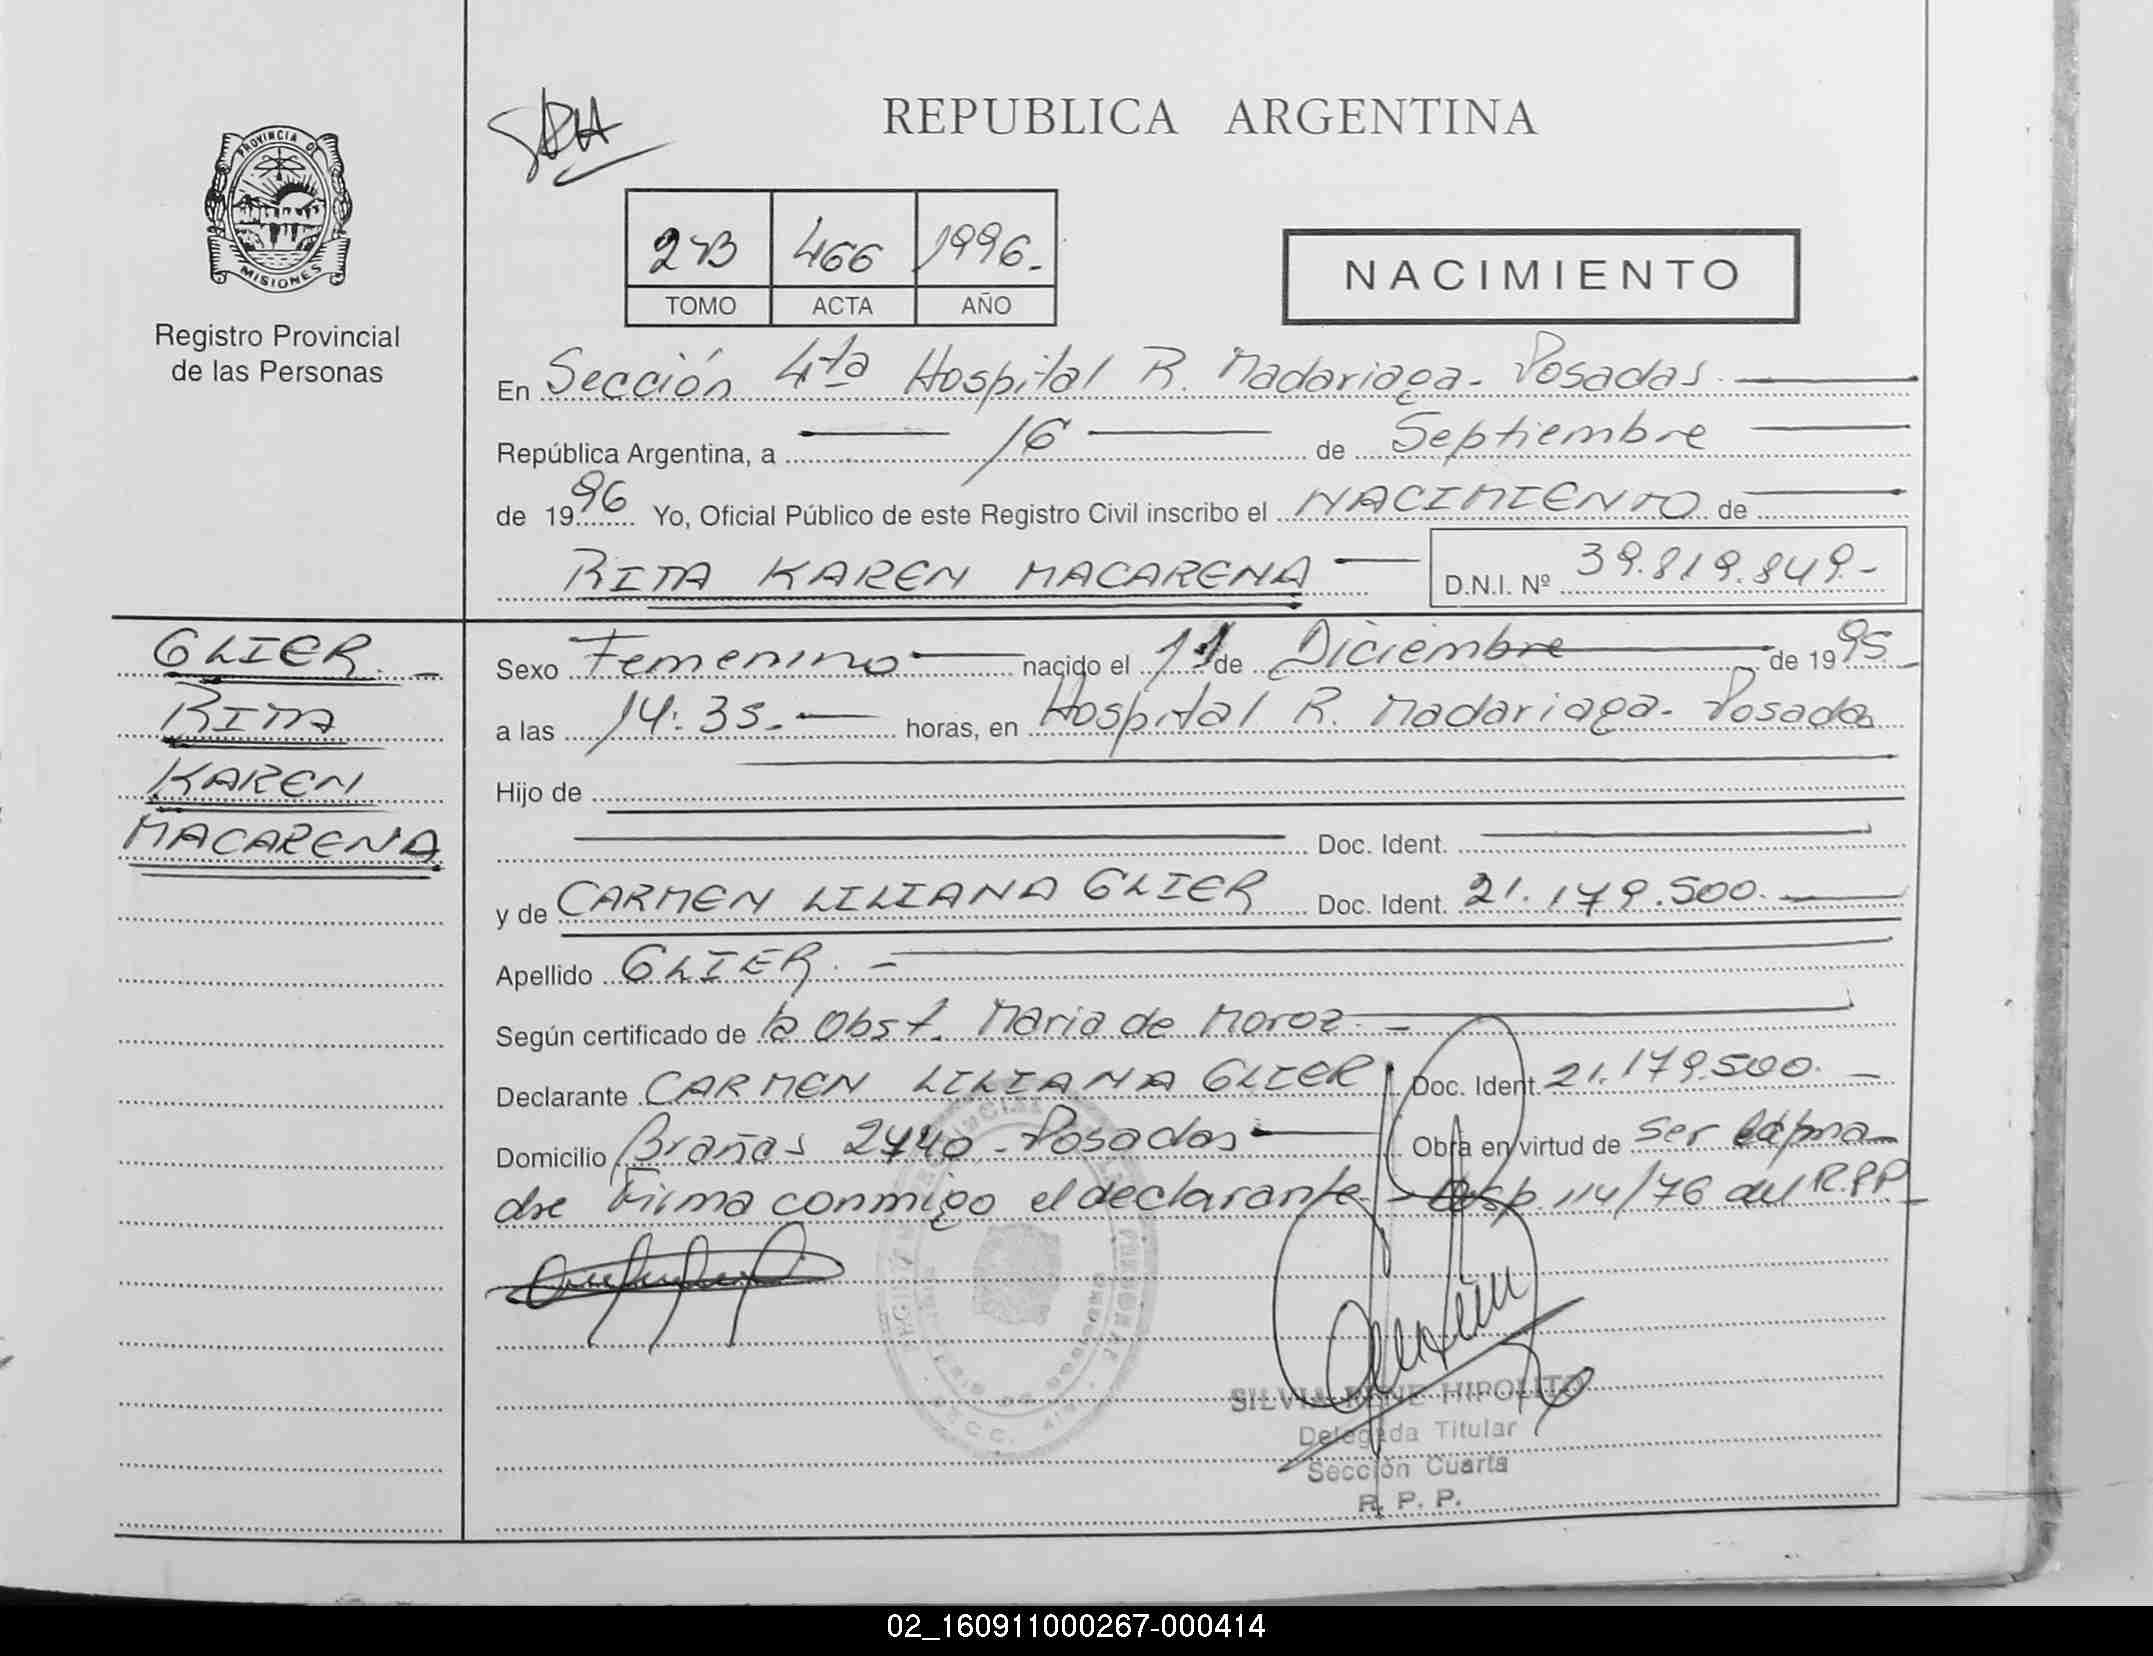 REPUBLICA ARGENTINA
PROVINCIA DE
MISIONES
Registro Provincial
de las Personas
466 1996.-
TOMO ACTA AÑO
NACIMIENTO
En Sección 4ta Hospital R. Madariaga - Posadas.
República Argentina, a 16 de Septiembre
de 1996 Yo, Oficial Público de este Registro Civil inscribo el NACIMIENTO de
RITA KAREN MACARENA D.N.I. Nº 39.819.849.-
GLIER.-
RITA
KAREN
MACARENA
Sexo Femenino nacido el 11 de Diciembre de 1995
a las 14:35.- horas, en Hospital R. Madariaga - Posadas
Hijo de
Doc. Ident.
y de CARMEN LILIANA GLIER Doc. Ident. 21.179.500.
Apellido GLIER.-
Según certificado de la Obst. Maria de Moroz.-
Declarante CARMEN LILIANA GLIER Doc. Ident. 21.179.500.-
Domicilio Brañas 2440 - Posadas Obra en virtud de ser la ma-
dre Firma conmigo el declarante - Disp. 114/76 del R.P.P.
SILVIA RENE HIPOLITO
Delegada Titular
Sección Cuarta
R. P. P.
02_160911000267-000414